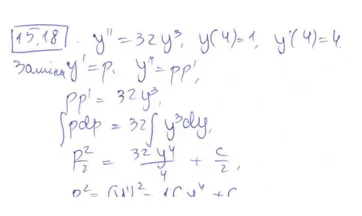 15.18. y'' = 32y³, y(4)=1, y'(4)=4.
Заміна y'=p, y''=pp',
pp' = 32y³,
∫pdp = 32∫y³dy,
p²/2 = 32y⁴/4 + c/2,
p² = (y')² = 16y⁴ + c